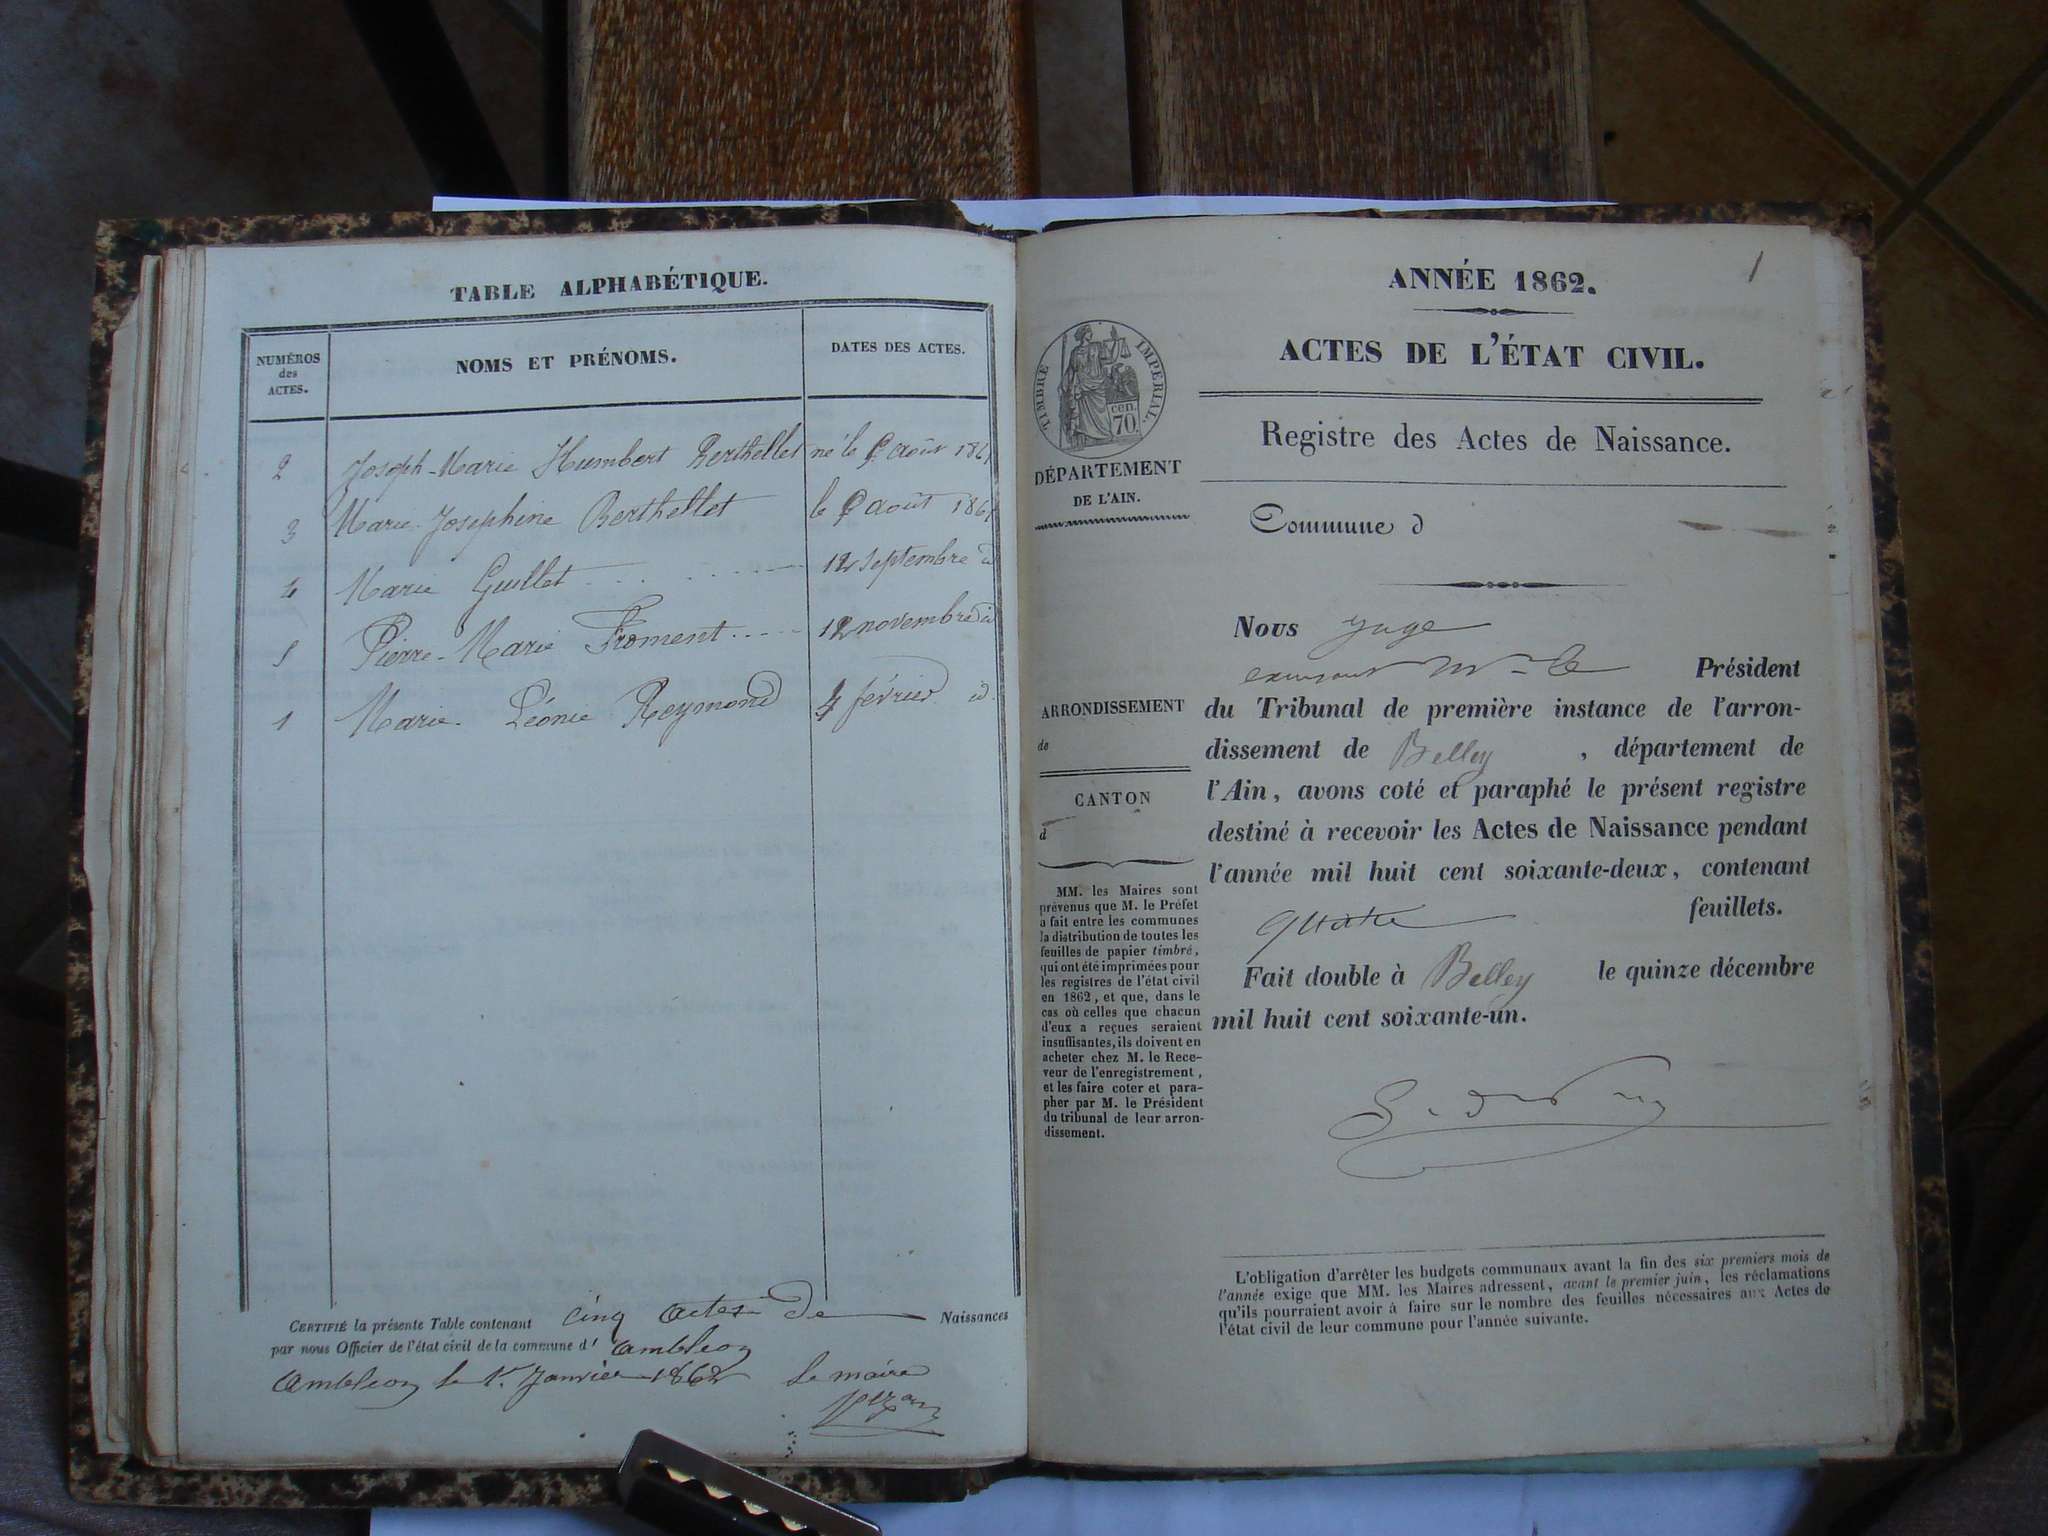 TABLE ALPHABÉTIQUE.
NUMÉROS
des
ACTES.
NOMS ET PRÉNOMS.
DATES DES ACTES.
2 Joseph-Marie Humbert Berthellet né le 9 août 1861
3 Marie-Josephine Berthellet le 9 août 1861
4 Marie Guillet 12 septembre id
5 Pierre-Marie Froment 12 novembre id
1 Marie-Léonie Reymond 4 février id.
CERTIFIÉ la présente Table contenant cinq actes de Naissances
par nous Officier de l'état civil de la commune d' ambléon
Ambléon le 1er Janvier 1862 le maire
1
ANNÉE 1862.
ACTES DE L'ÉTAT CIVIL.
Registre des Actes de Naissance.
Commune d
TIMBRE IMPERIAL.
cen.
70.
DÉPARTEMENT
DE L'AIN.
ARRONDISSEMENT
de
CANTON
d
MM. les Maires sont
prévenus que M. le Préfet
a fait entre les communes
la distribution de toutes les
feuilles de papier timbré,
qui ont été imprimées pour
les registres de l'état civil
en 1862, et que, dans le
cas où celles que chacun
d'eux a reçues seraient
insuffisantes, ils doivent en
acheter chez M. le Rece-
veur de l'enregistrement,
et les faire coter et para-
pher par M. le Président
du tribunal de leur arron-
dissement.
Nous juge
Président
du Tribunal de première instance de l'arron-
dissement de Belley, département de
l'Ain, avons coté et paraphé le présent registre
destiné à recevoir les Actes de Naissance pendant
l'année mil huit cent soixante-deux, contenant
quatre feuillets.
Fait double à Belley le quinze décembre
mil huit cent soixante-un.
L'obligation d'arrêter les budgets communaux avant la fin des six premiers mois de
l'année exige que MM. les Maires adressent, avant le premier juin, les réclamations
qu'ils pourraient avoir à faire sur le nombre des feuilles nécessaires aux Actes de
l'état civil de leur commune pour l'année suivante.